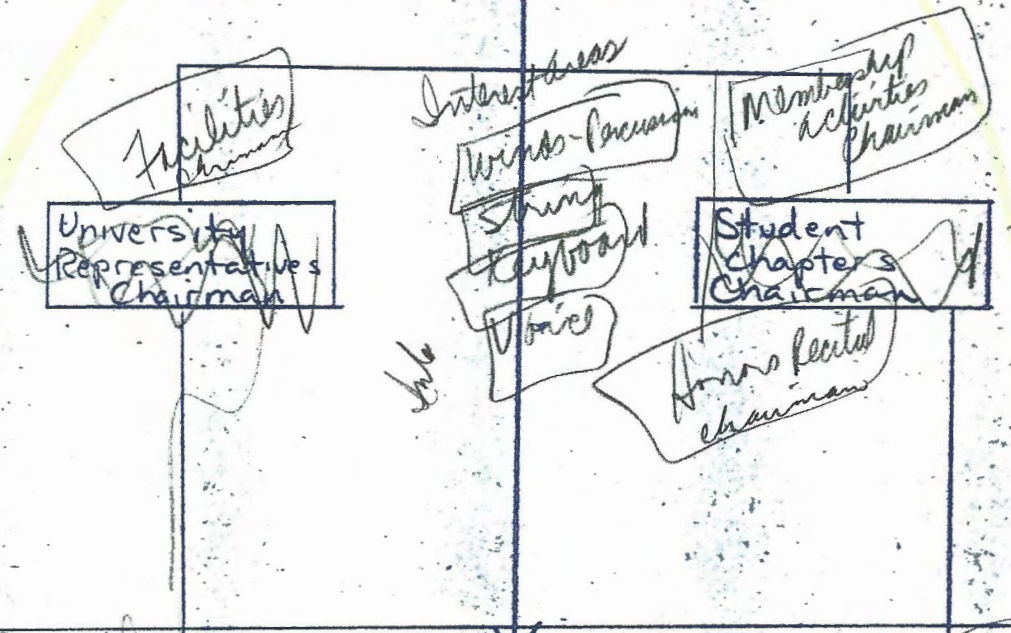 Facilities
Chairman
University
Representatives
Chairman
Interest Areas
Winds-Percussion
String
Keyboard
Voice
Membership
activities
Chairman
Student
Chapters
Chairman
Honors Recital
chairman